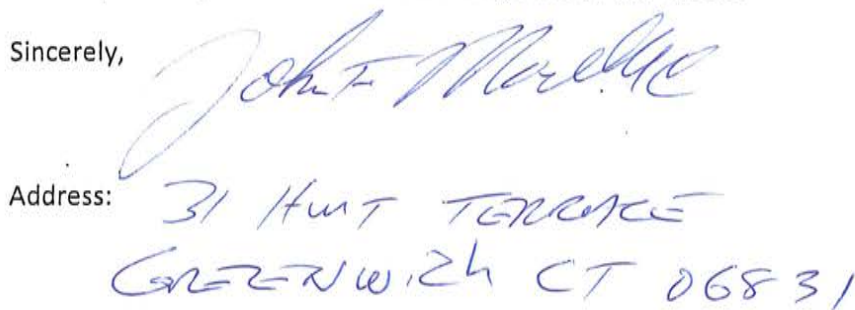 Sincerely,
John F
Address:
31 Hunt TERRACE
GREENWich CT 06831